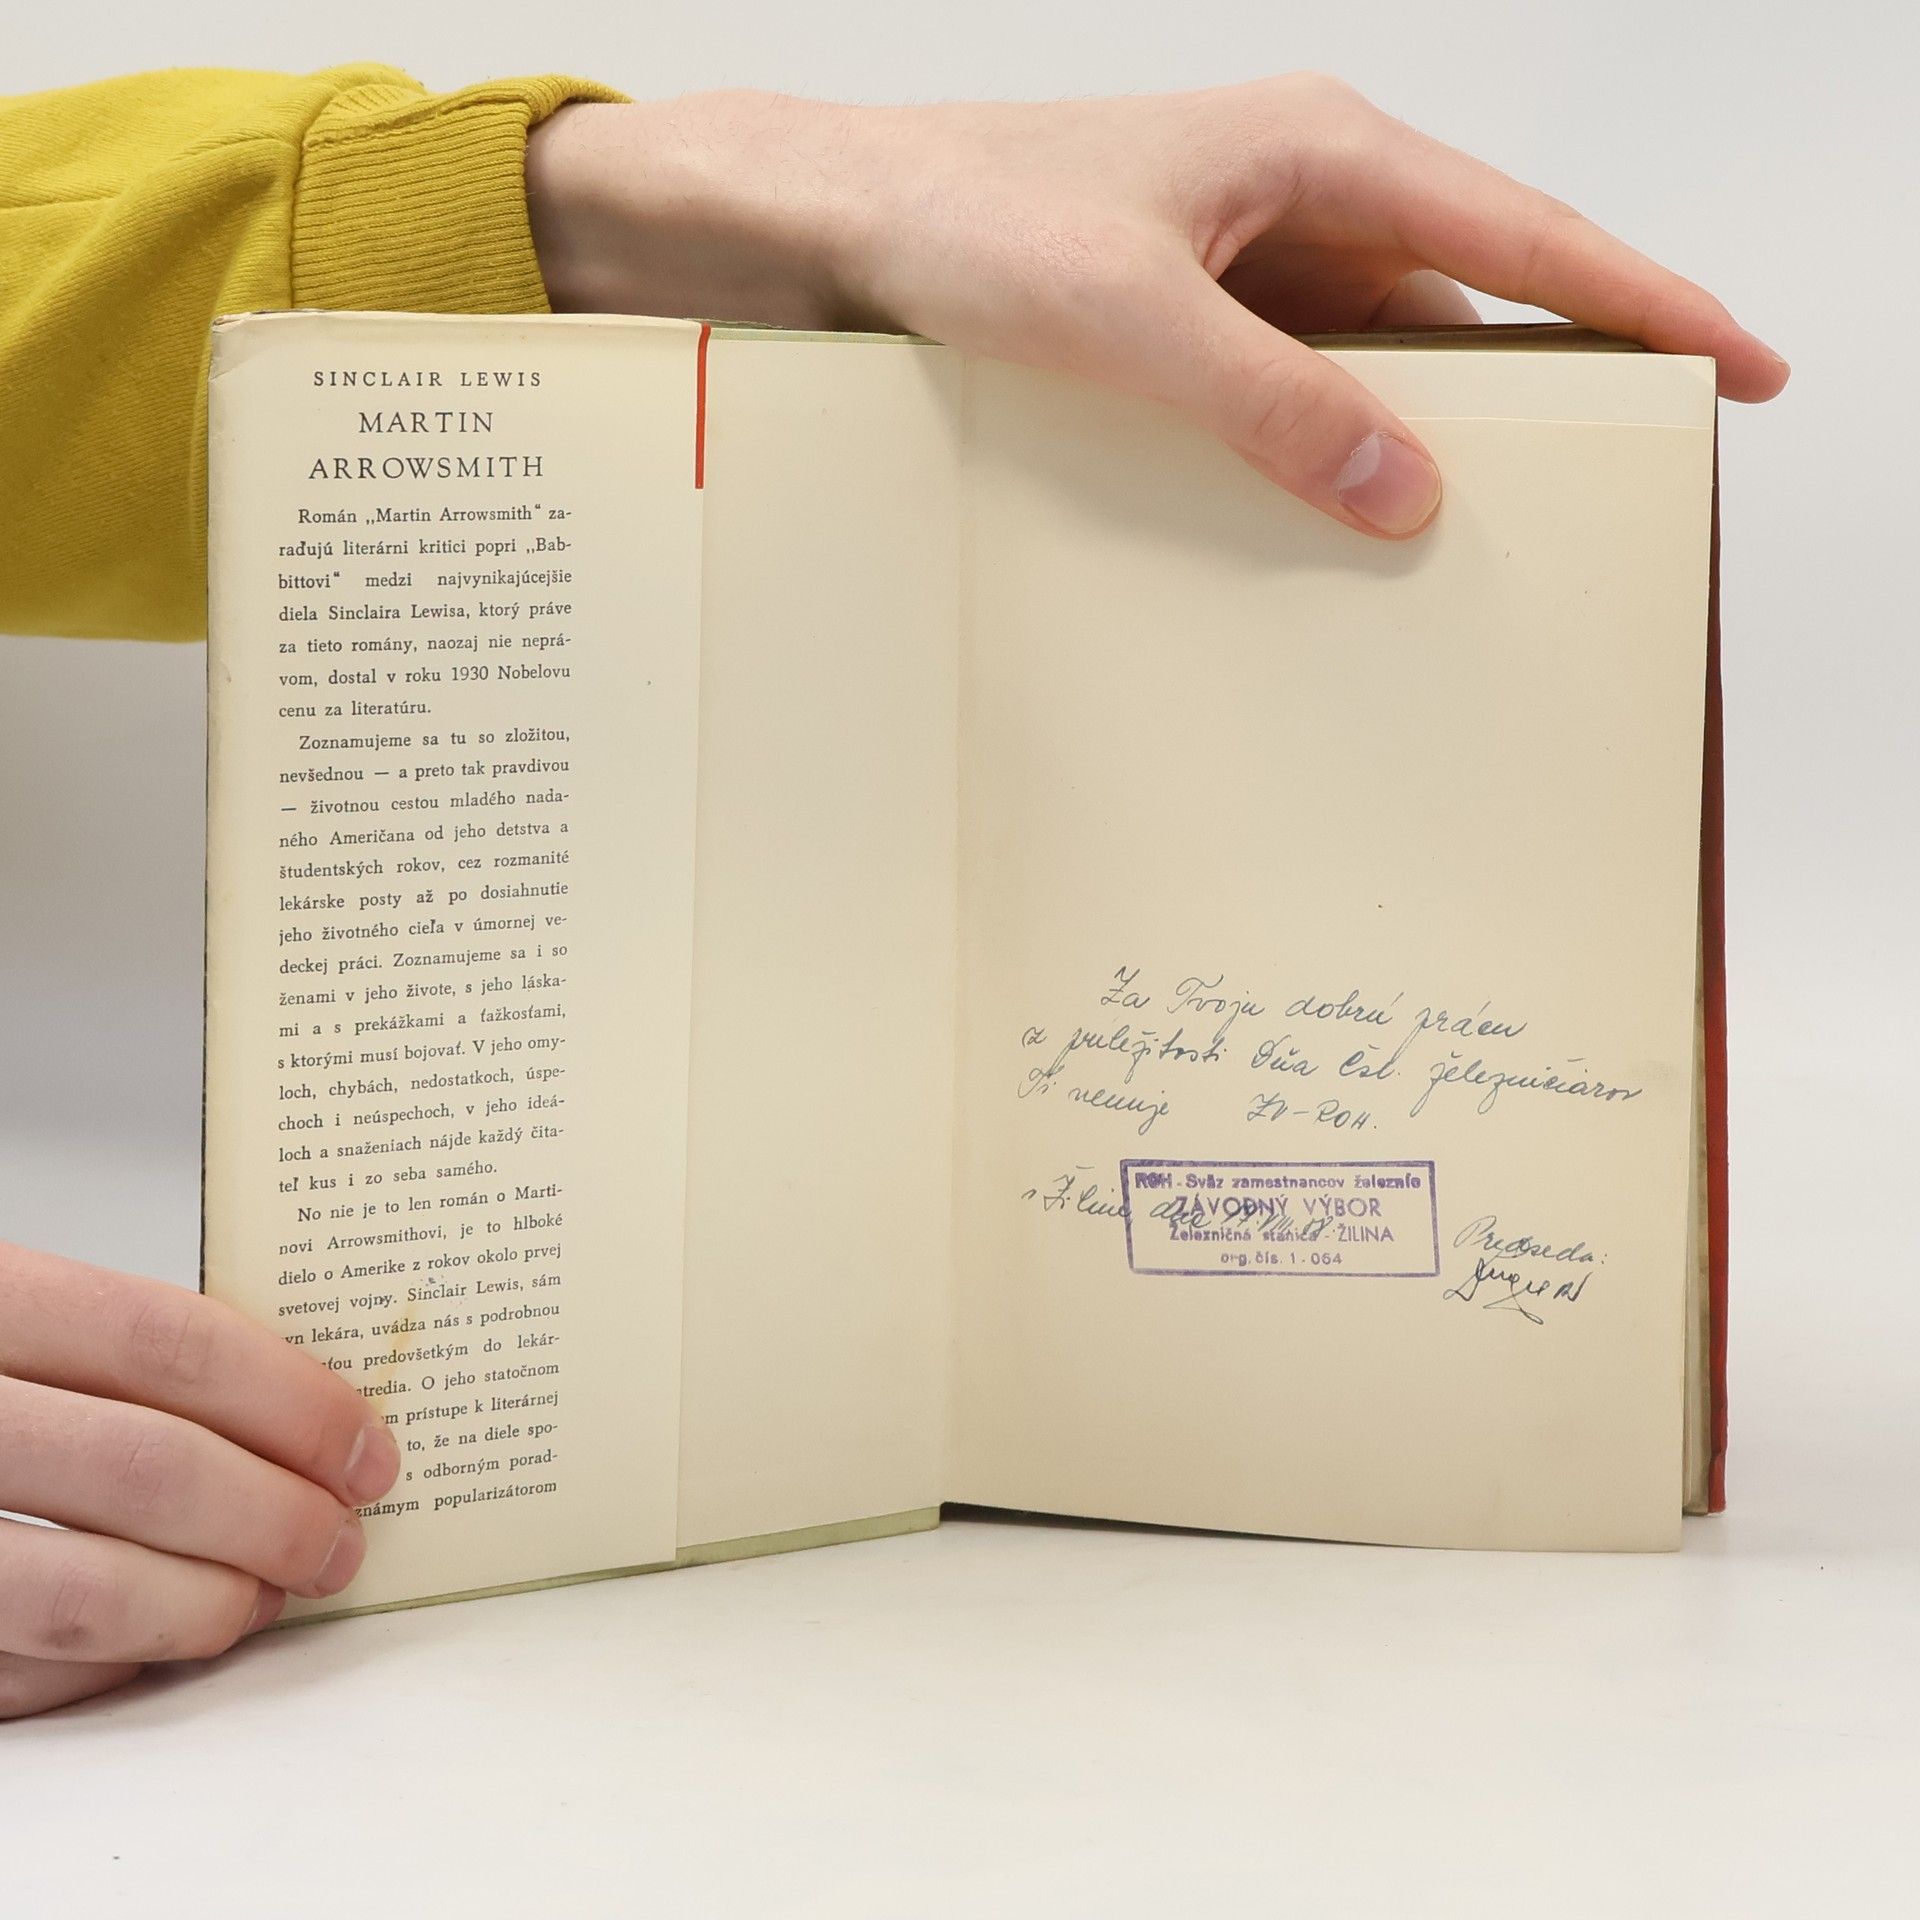 SINCLAIR LEWIS
MARTIN
ARROWSMITH
Román „Martin Arrowsmith“ za-
raďujú literárni kritici popri „Bab-
bittovi“ medzi najvynikajúcejšie
diela Sinclaira Lewisa, ktorý práve
za tieto romány, naozaj nie neprá-
vom, dostal v roku 1930 Nobelovu
cenu za literatúru.
Zoznamujeme sa tu so zložitou,
nevšednou — a preto tak pravdivou
— životnou cestou mladého nada-
ného Američana od jeho detstva a
študentských rokov, cez rozmanité
lekárske posty až po dosiahnutie
jeho životného cieľa v úmornej ve-
deckej práci. Zoznamujeme sa i so
ženami v jeho živote, s jeho láska-
mi a s prekážkami a ťažkosťami,
s ktorými musí bojovať. V jeho omy-
loch, chybách, nedostatkoch, úspe-
choch i neúspechoch, v jeho ideá-
loch a snaženiach nájde každý čita-
teľ kus i zo seba samého.
No nie je to len román o Marti-
novi Arrowsmithovi, je to hlboké
dielo o Amerike z rokov okolo prvej
svetovej vojny. Sinclair Lewis, sám
yn lekára, uvádza nás s podrobnou
sťou predovšetkým do lekár-
tredia. O jeho statočnom
m prístupe k literárnej
to, že na diele spo-
s odborným porad-
známym popularizátorom
Za Tvoju dobrú prácu
z príležitosti Dňa Čsl. železničiarov
Ti venuje ZV-ROH.
v Žiline dňa
ROH - Sväz zamestnancov železníc
ZÁVODNÝ VÝBOR
Železničná stanica - ŽILINA
org. čís. 1 - 064
Predseda: